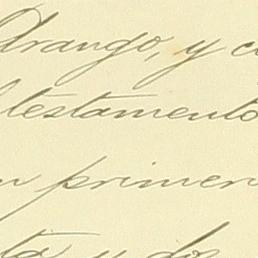 Arango, y c
testamento
n primer
ta y dos